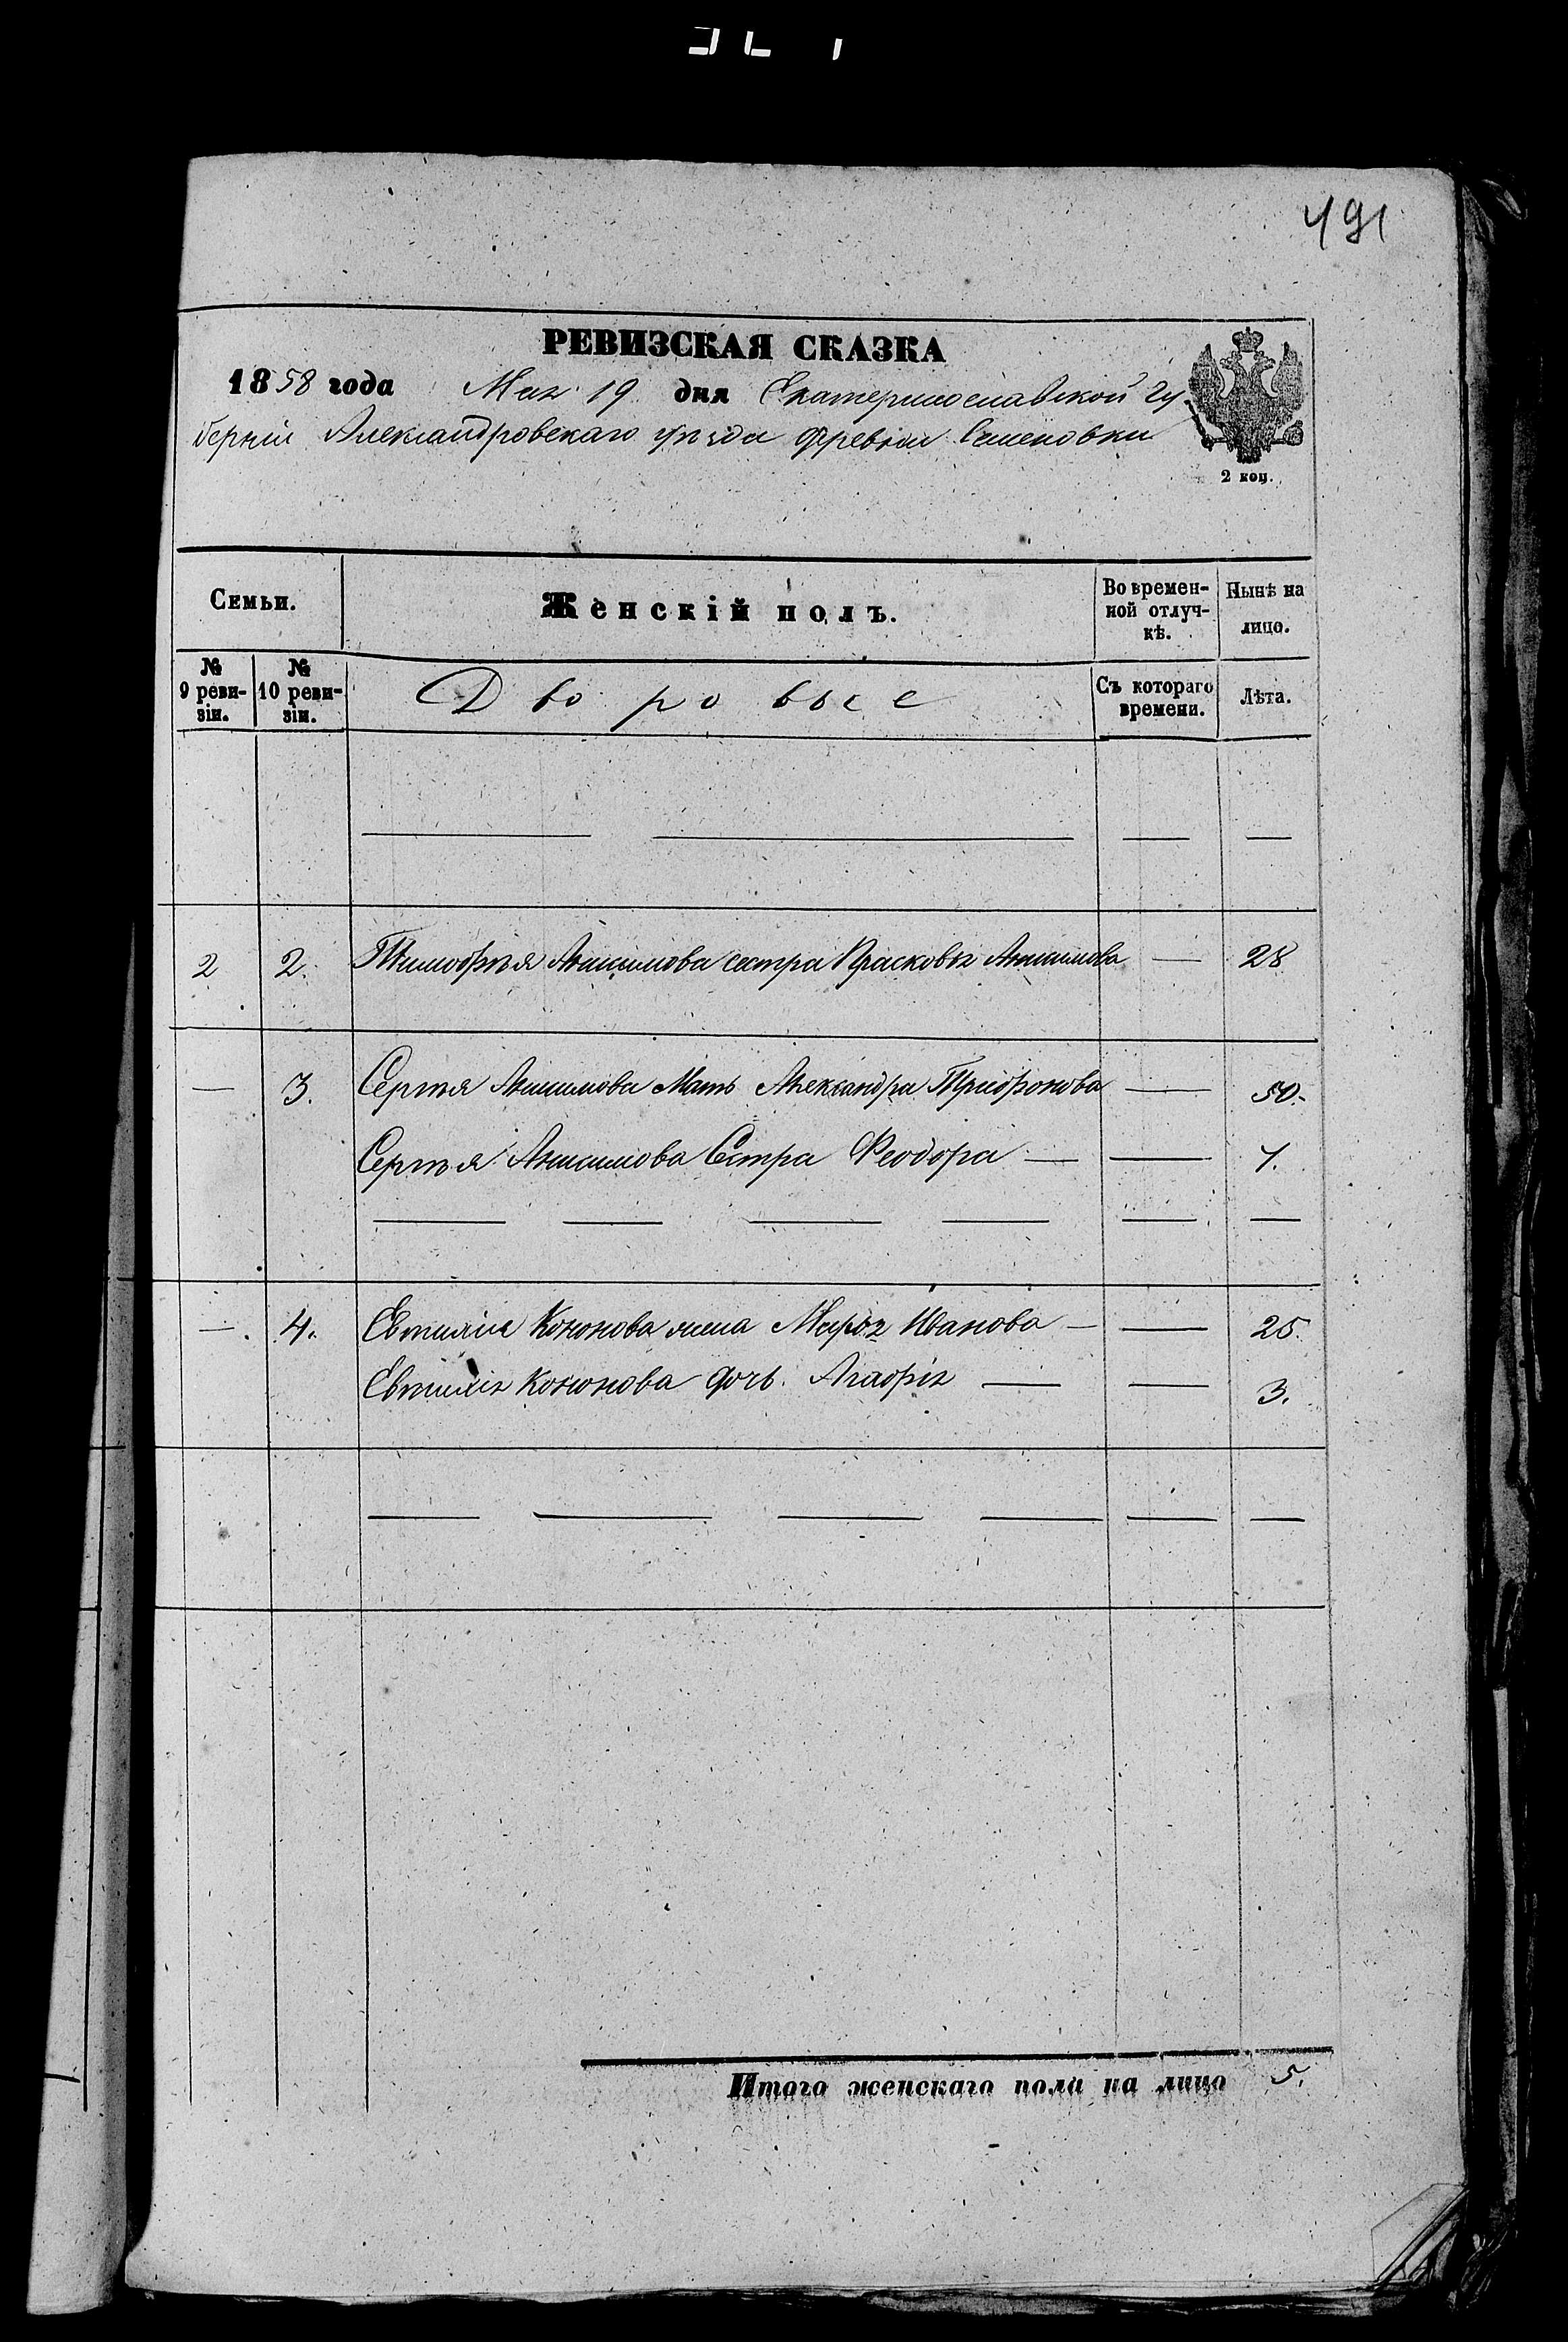 491
РЕВИЗСКАЯ СКАЗКА
1858 года Мая 19 дня Екатеринославской Гу
берніи Александровскаго уѣзда деревни Семеновки
2 коп.
Семьи. Женскій полъ. Во времен- Нынѣ на
ной отлуч- лицо.
кѣ.
№ № Дворовые Съ котораго Лѣта.
9 реви- 10 реви- времени.
зіи. зіи.
2 2. Тимофѣя Анисимова сестра Прасковья Анисимова — 28
— 3. Сергѣя Анисимова Мать Александра Трифонова — 50.
Сергѣя Анисимова Сестра Феодора — —
—. 4. Евтихія Кононова жена Марья Иванова — — 25.
Евтихія Кононова дочь Агафія — — 3.
Итого женскаго пола на лицо 5.